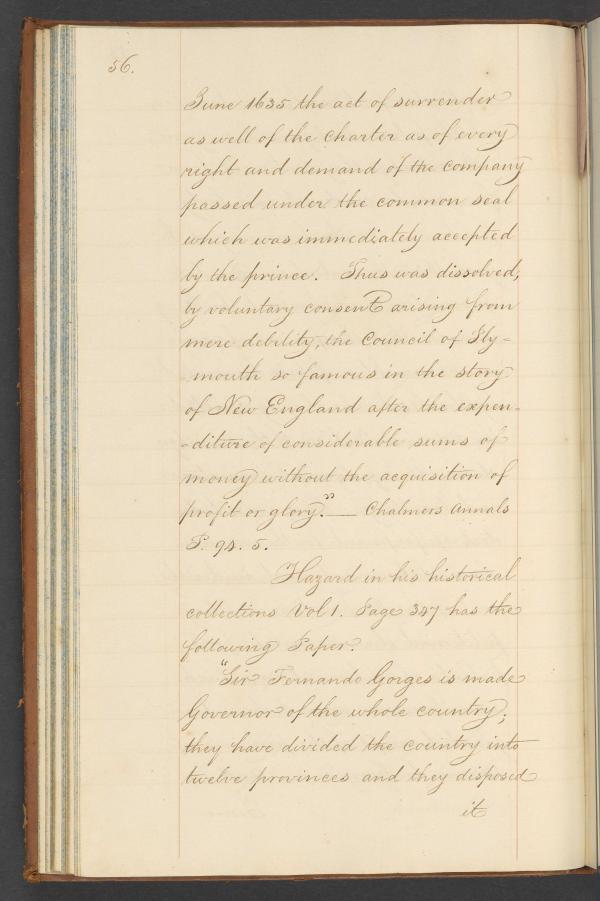 56.
June 1635 the act of surrender
as well of the charter as of every
right and demand of the company
passed under the common seal
which was immediately accepted
by the prince. Thus was dissolved,
by voluntary consent arising from
mere debility, the Council of Ply-
-mouth so famous in the story
of New England after the expen-
-diture of considerable sums of
money without the acquisition of
profit or glory." — Chalmers Annals
P. 94. 5.
Hazard in his historical
collections Vol 1. Page 347 has the
following Paper.
"Sir Fernando Gorges is made
Governor of the whole country;
they have divided the country into
twelve provinces and they disposed
it